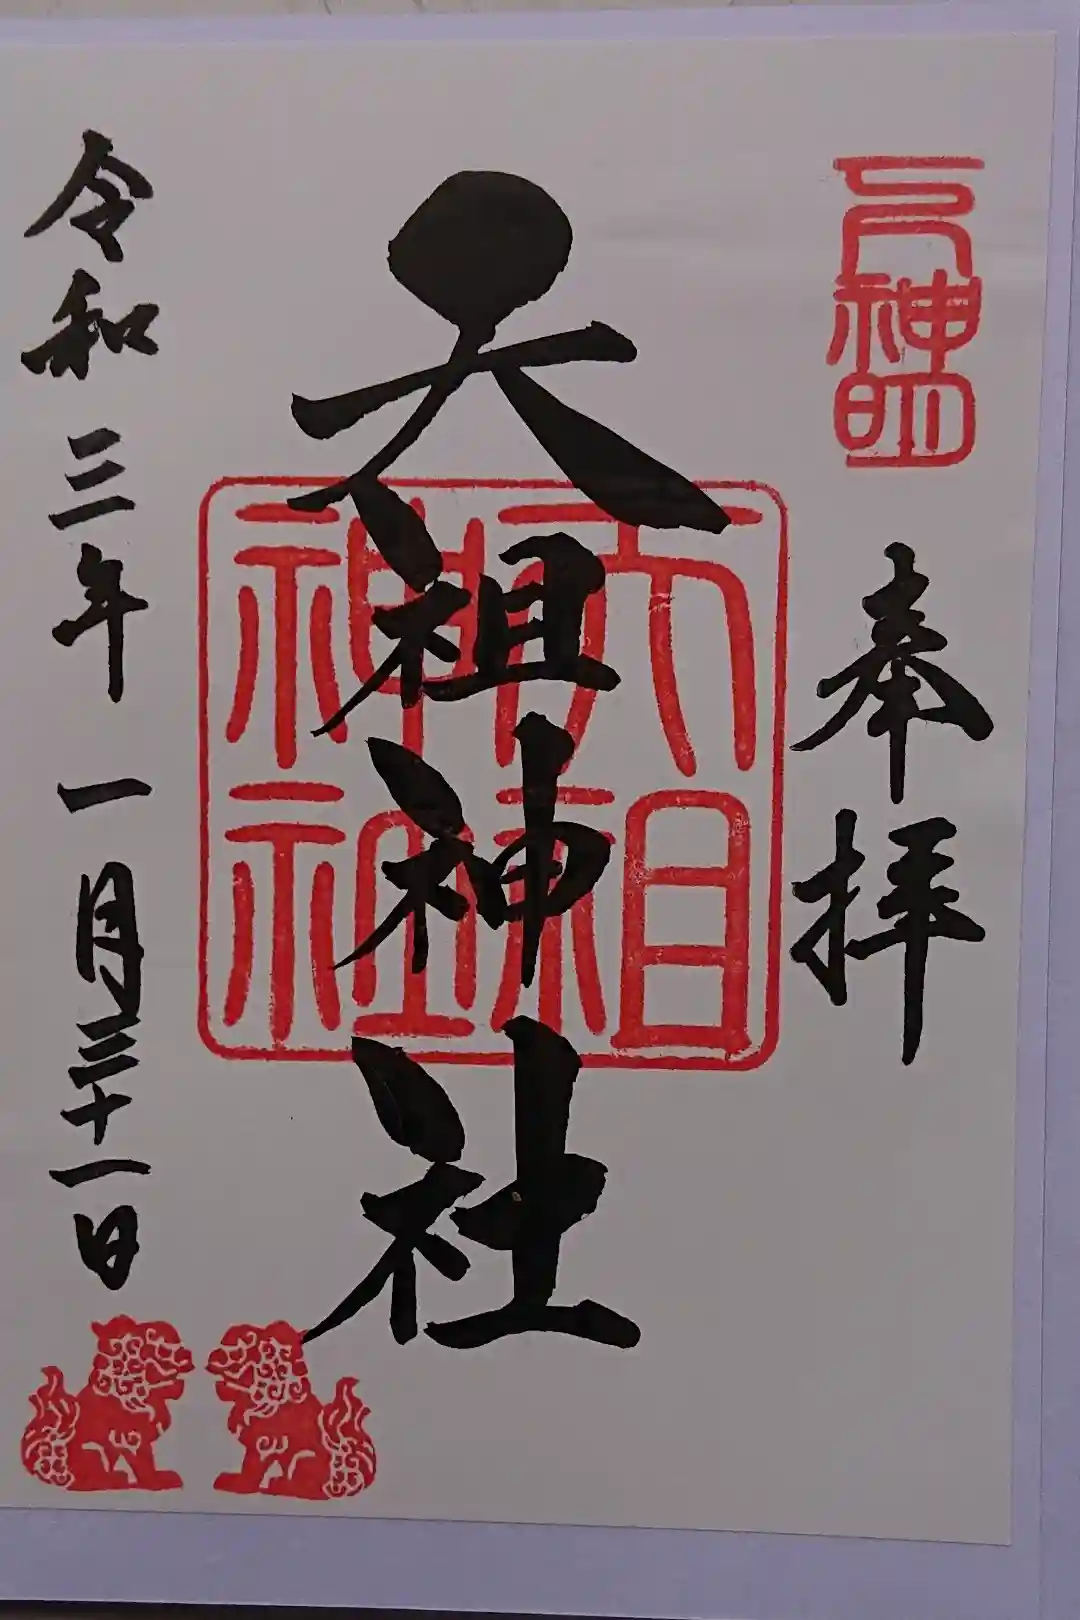 神明
奉拝
天祖神社
天祖
神社
令和三年一月三十一日